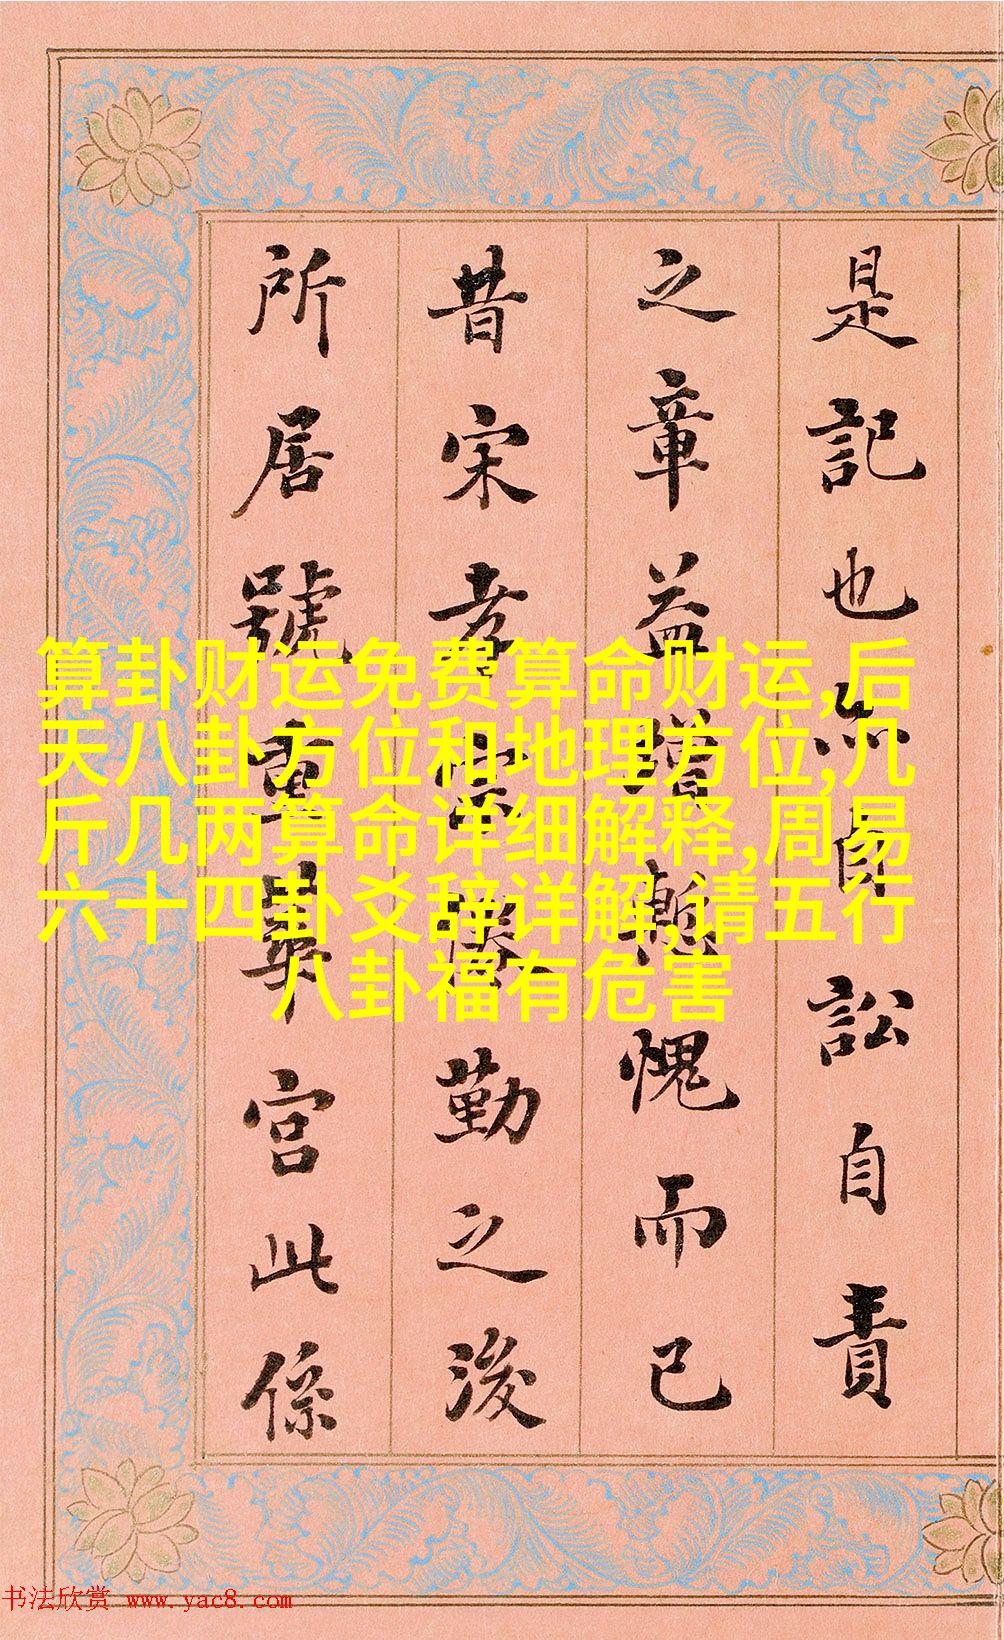 是記也亦自訟自責
之章益增慙愧而已
昔宋孝宗倦勤之後
所居號重華宮此係
算卦财运免费算命财运,后
天八卦方位和地理方位,几
斤几两算命详细解释,周易
六十四卦爻辞详解,请五行
八卦福有危害
书法欣赏 www.yac8.com